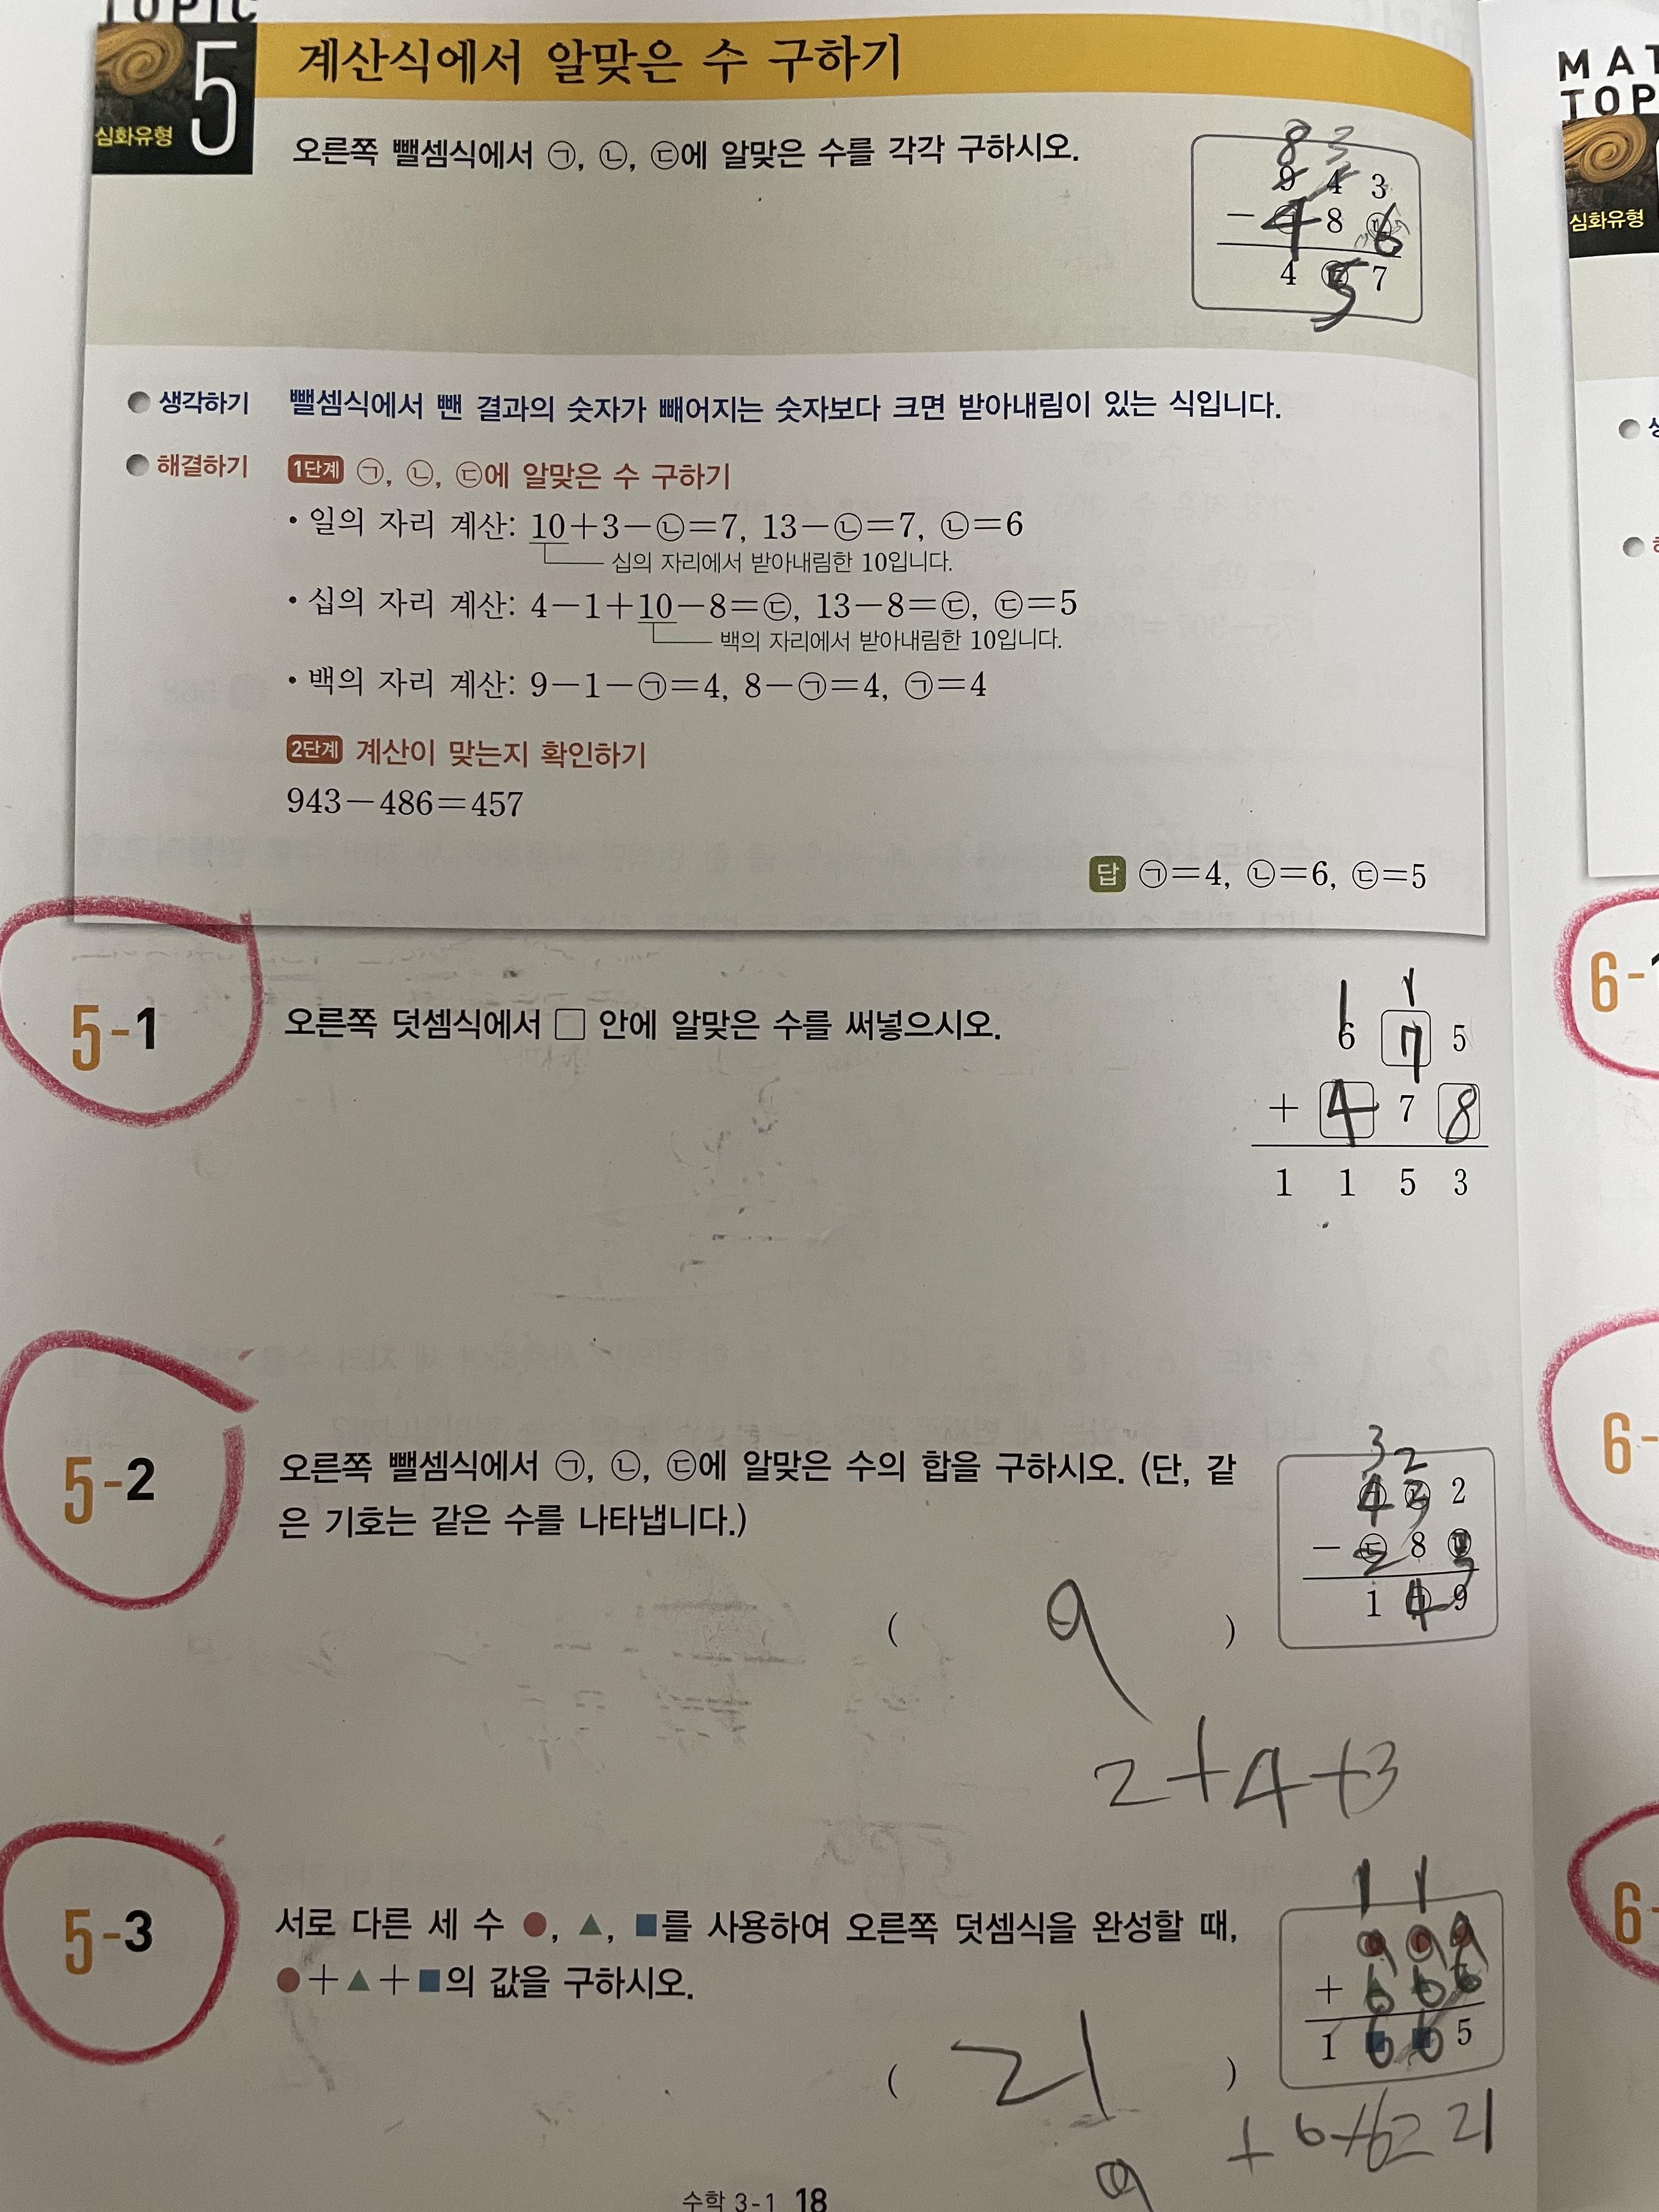 TOPIC
심화유형 5 계산식에서 알맞은 수 구하기
오른쪽 뺄셈식에서 ㉠, ㉡, ㉢에 알맞은 수를 각각 구하시오.
8 3
9 4 3
- 4 8 6
4 5 7
생각하기 뺄셈식에서 뺀 결과의 숫자가 빼어지는 숫자보다 크면 받아내림이 있는 식입니다.
해결하기 1단계 ㉠, ㉡, ㉢에 알맞은 수 구하기
• 일의 자리 계산: 10+3-㉡=7, 13-㉡=7, ㉡=6
십의 자리에서 받아내림한 10입니다.
• 십의 자리 계산: 4-1+10-8=㉢, 13-8=㉢, ㉢=5
백의 자리에서 받아내림한 10입니다.
• 백의 자리 계산: 9-1-㉠=4, 8-㉠=4, ㉠=4
2단계 계산이 맞는지 확인하기
943-486=457
답 ㉠=4, ㉡=6, ㉢=5
5-1 오른쪽 덧셈식에서 □ 안에 알맞은 수를 써넣으시오.
1 1
6 7 5
+ 4 7 8
1 1 5 3
5-2 오른쪽 뺄셈식에서 ㉠, ㉡, ㉢에 알맞은 수의 합을 구하시오. (단, 같
은 기호는 같은 수를 나타냅니다.)
3 2
4 3 2
- ㉢ 8 ㉡
1 4 9
( 9 )
2+4+3
5-3 서로 다른 세 수 ●, ▲, ■를 사용하여 오른쪽 덧셈식을 완성할 때,
●+▲+■의 값을 구하시오.
1 1
9 9 9
+ 6 6 6
1 6 6 5
( 21 )
9 + 6+6=21
수학 3-1 18
MAT
TOP
심화유형
6-1
6-
6-